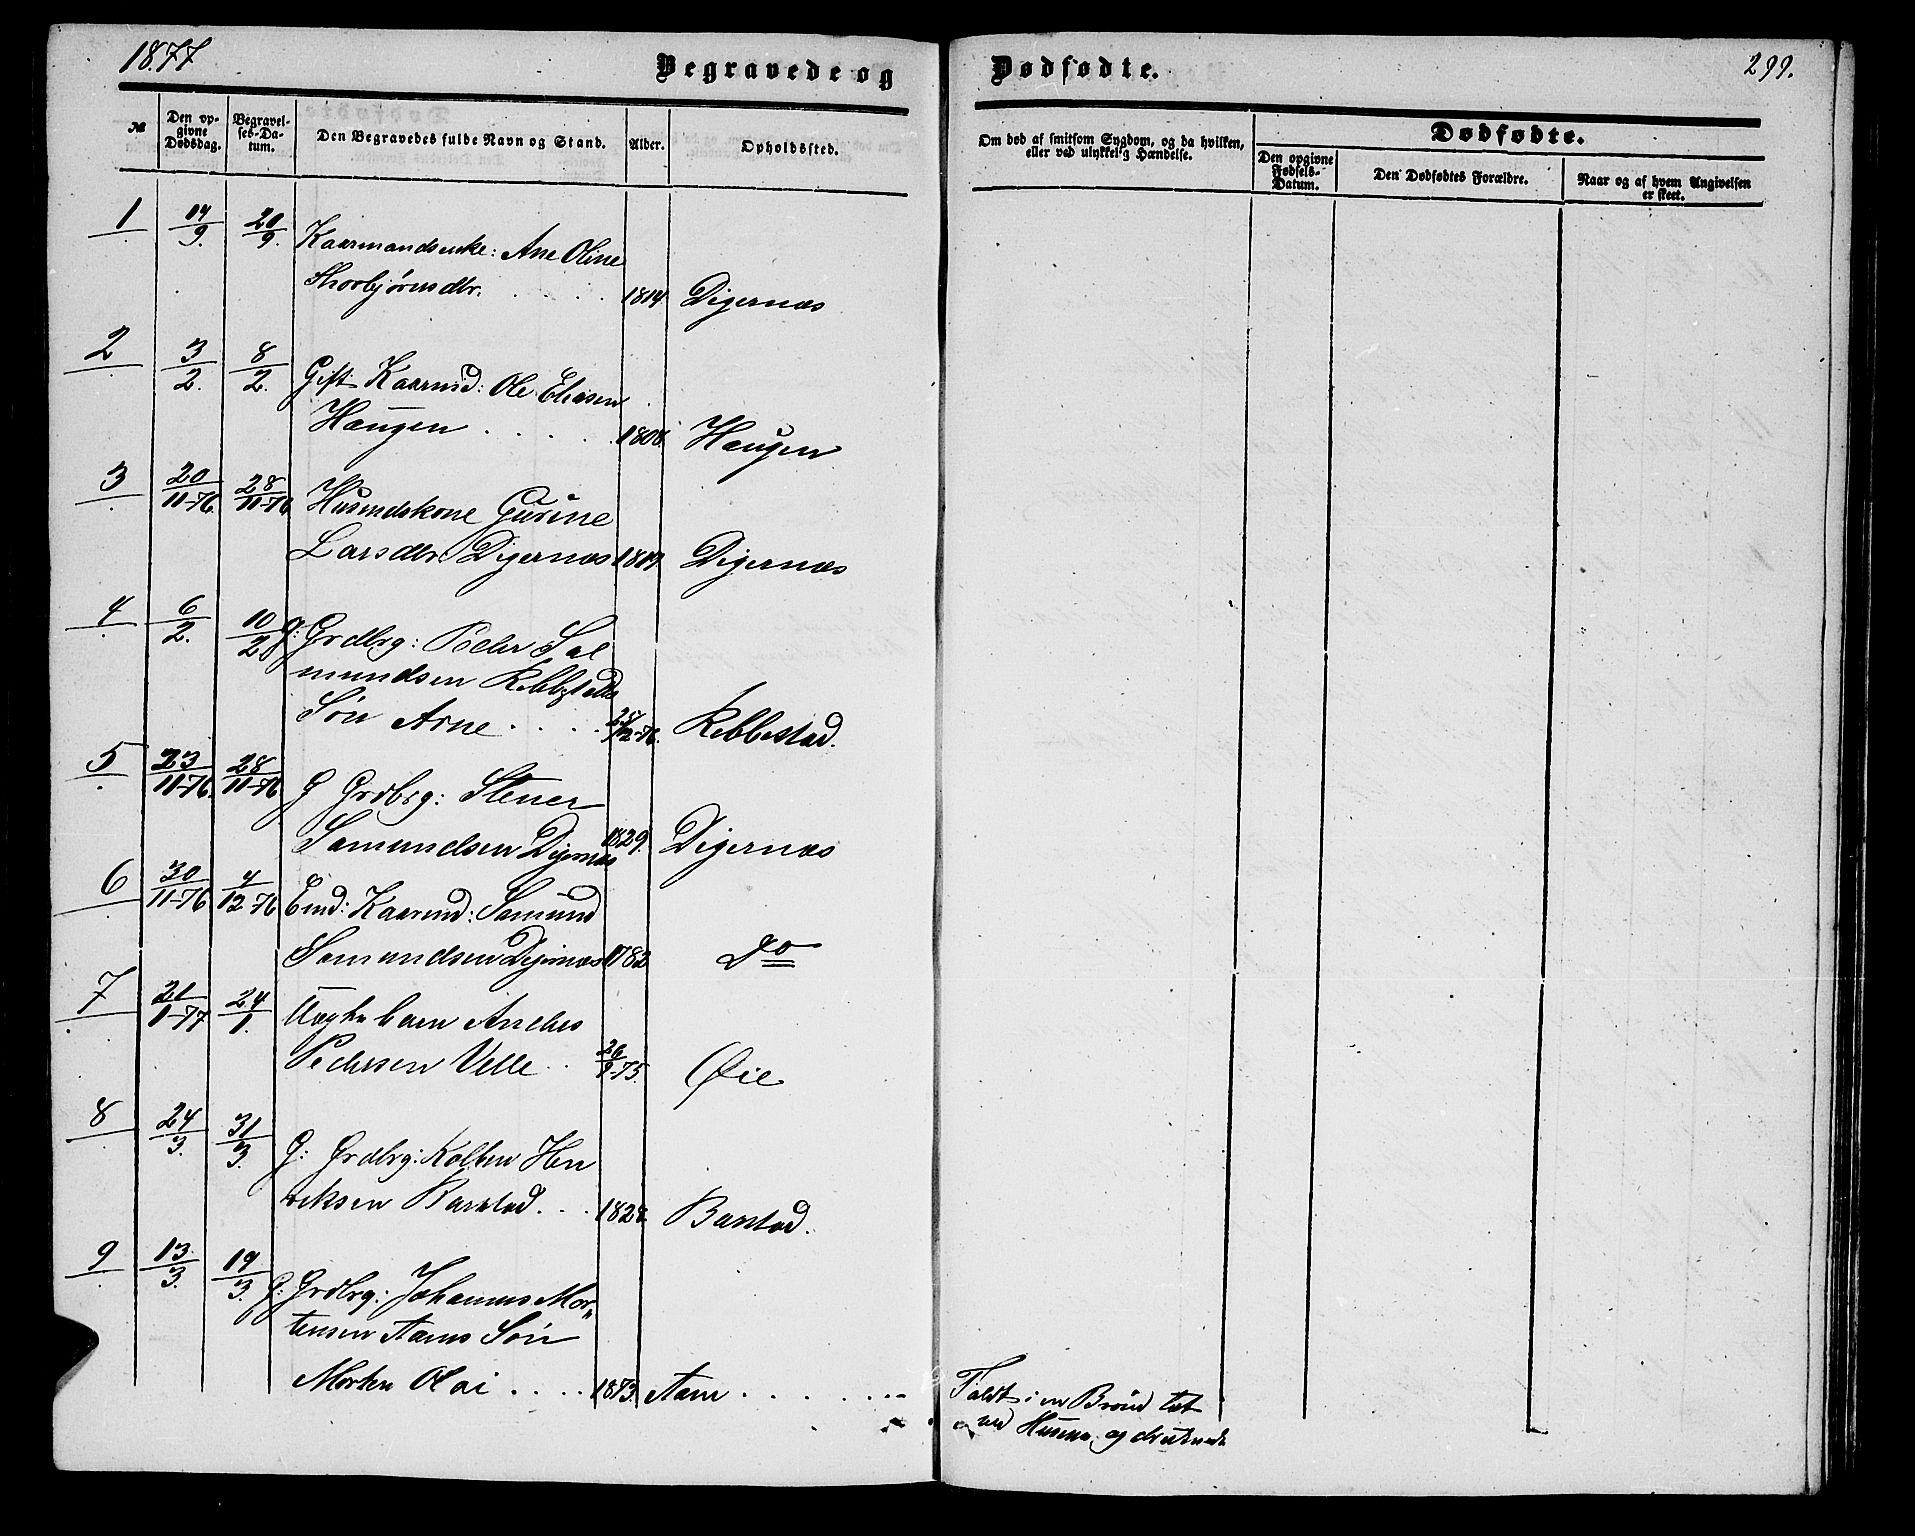 1877
Begravede og
Dødfødte.
299.
№
Den opgivne Dødsdag.
Begravelses-Datum.
Den Begravedes fulde Navn og Stand.
Alder.
Opholdssted.
Om død af smitsom Sygdom, og da hvilken, eller ved ulykkelig Hændelse.
Dødfødte.
Den opgivne Fødsels-Datum.
Den Dødfødtes Forældre.
Naar og af hvem Angivelsen er skeet.
1 20/9. Kaarmandsenke: Ane Oline
Thorbjørnsdtr. 1814. Digernæs
2 3/2. 8/2. Gift Kaarmd: Ole Eliasen
Haugen 1808. Haugen
3 20/11-76. 28/11-76. Husmdskone Gurine
Larsdtr Digernæs Digernæs
4 6/2. 10/2 g: Grdbrg: Peder Sal
mundsen Rebbestad
Søn Arne 28/12-76. Rebbestad.
5 23/11-76. 28/11-76 G Grdbrg: Stener
Samundsen Digernæs 1829. Digernæs
6 30/11-76 4/12-76 Emd: Kaarmd: Samund
Samundsen Digernæs 1782 Do
7 21/1-77 24/1. Uægte barn Anders
Pedersen Velle 26/9-75. Øie
8 24/3. 31/3. G: Grdbrg: Kolben Hen
riksen Barstad. 1828. Barstad.
9 13/3. 19/3. G: Grdbrg: Johannes Mor-
tensen Aams Søn
Morten Olai 1873. Aam Faldt i en Brønd tæt
ved Husene og druknede